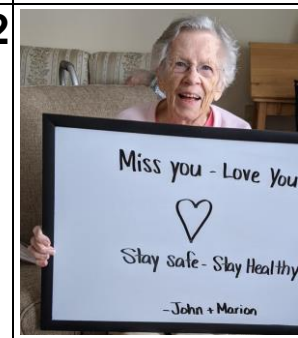 2
Miss you - Love You
Stay safe - Stay Healthy
- John + Marion